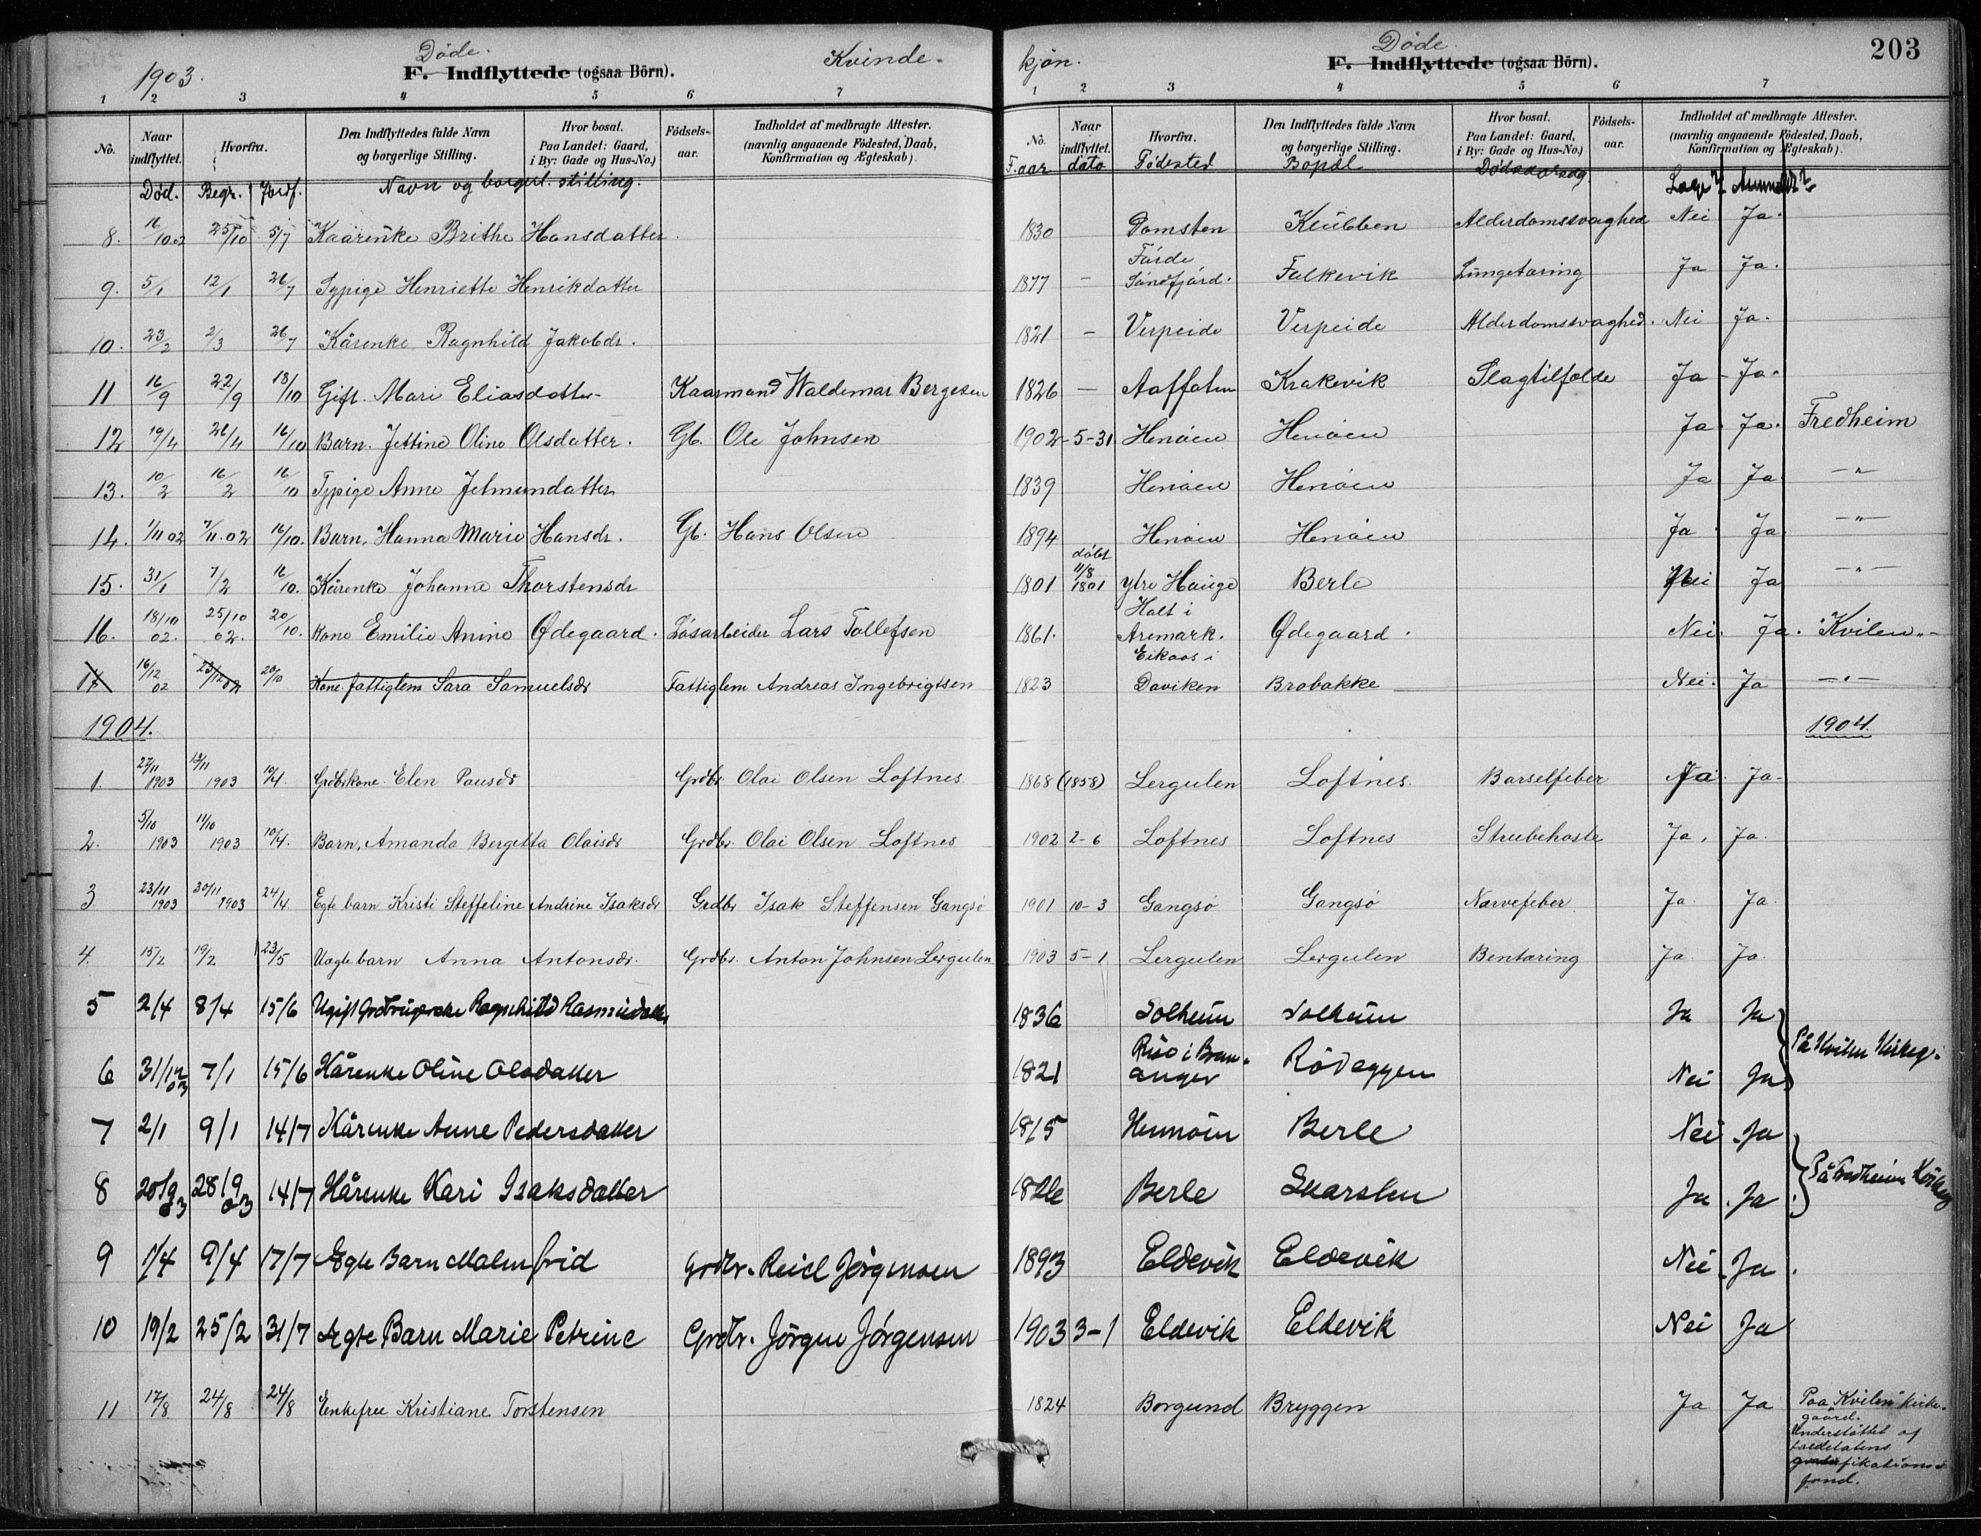 1903.
Døde.
F. Indflyttede (ogsaa Börn).
Kvinde-
kjøn.
Døde.
F. Indflyttede (ogsaa Börn).
203
1 2 3 4 5 6 7
1 2 3 4 5 6 7
No. Naar indflyttet. Hvorfra. Den Indflyttedes fulde Navn og borgerlige Stilling. Hvor bosat. Paa Landet: Gaard, i By: Gade og Hus-No.) Födsels-aar. Indholdet af medbragte Attester. (navnlig angaaende Födested, Daab, Konfirmation og Ægteskab).
No. Naar indflyttet. Hvorfra. Den Indflyttedes fulde Navn og borgerlige Stilling. Hvor bosat. Paa Landet: Gaard, i By: Gade og Hus-No.) Födsels-aar. Indholdet af medbragte Attester. (navnlig angaaende Födested, Daab, Konfirmation og Ægteskab).
Død. Begr. Jordf. Navn og borgerl. stilling. F. aar dato Fødested Bopæl Dødsaarsag. Læge?
8. 16/10.02 25/10 5/7 Kaarenke Brithe Hansdatter. 1830 Domsten Klubben Alderdomssvaghed Nei Ja.
9. 5/1 12/1 26/7 Typige Henriette Henrikdatter 1877 - Førde Søndfjord. Falkevik Lungetæring Ja Ja.
10. 23/2 2/3 26/7 Kårenke Ragnhild Jakobdr. 1821 - Verpeide Verpeide Alderdomssvaghed. Nei Ja.
11 16/9 22/9 18/10 Gift. Mari Eliasdatter Kaarmand Waldemar Bergesen 1826 - Krakevik Slagtilfælde Ja - Ja.
12 19/4 26/4 16/10 Barn. Jettine Oline Olsdatter. Gb. Ole Johnsen 1902-5-31 Henøen Henøen Ja. Ja. Fredheim
13. 10/2 16/2 16/10 Typige Anne Jetmundatter 1839 Henøen Henøen Ja Ja. -"-
14. 1/11 02 7/11.02 16/10. Barn. Hanna Marie Hansdr. Gb. Hans Olsen 1894 Henøen Henøen Ja. Ja. -"-
15. 31/1 7/2 16/10. Kårenke Johanne Thorstensdr 1801 døbt 11/8 1801 Ytre Hauge Berle Nei Ja -"-
16. 18/10 02. 25/10 02. 20/10. Kone Emilie Anine Ødegaard. Løsarbeider Lars Tollefsen 1861. Holt i Aremark. Ødegaard. Nei. Ja. "Kvilen"-
17 16/12 02 23/12 02 20/10 Kone fattiglem Sara Samuelsdr Fattiglem Andreas Ingebrigtsen 1823 Eikaas i Daviken Brobakke Nei. Ja -"-
1904. 1904.
1. 27/11 1903 1903 10/4. Grdbrkone Elen Pausdr Grdbr. Olai Olsen Loftnes 1868 (1858) Lergulen Loftnes. Barselfeber Ja. Ja-
2. 5/10 1903 11/10 1903 10/4. Barn, Amanda Bergetta Olaisdr Grdbr. Olai Olsen Loftnes 1902 2-6 Loftnes Loftnes Strubehoste Ja. Ja.
3 23/11 1903 30/11 1903 24/4 Egte barn Kristi Steffeline Andrine Isaksdr Grdbr Isak Steffensen Gangsø 1901 10-3 Gangsø Gangsø Nærvefeber Ja. Ja.
4. 15/2 19/2 23/5 Uægte barn Anna Antonsdr. Grdbr. Anton Johnsen Lergulen 1903 5-1 Lergulen Lergulen Bentæring Ja. Ja.
5 2/4 8/4 15/6 Ugift Ragnhild Rasmusdatter 1836 Solheim Solheim Ja Ja
6 31/12 03 7/1 15/6 Kårenke Oline Olsdatter 1821 Risø i Bremanger Rødeggen Nei Ja På Kvilen Kirkeg.
7 2/1 9/1 14/7 Kårenke Anne Pedersdatter 1815 Hennøen Berle Nei Ja
8 20/9 03 28/9 03 14/7 Kårenke Kari Isaksdatter 1826 Berle Skarsten Ja. Ja På Fredheim Kirkeg
9 1/4 9/4 17/7 Egte Barn Malmfrid Grdbr. Reiel Jørgensen 1893 Eldevik Eldevik Nei Ja.
10 19/2 25/2 31/7 Ægte Barn Marie Petrine Grdbr. Jörgen Jørgensen 1903 3-1 Eldevik Eldevik Nei Ja
11 17/8 24/8 24/8 Enkefrue Kristiane Torstensen 1824 Borgund Bryggen Ja Ja Paa "Kvilen" kirke-
gaard.
Understøttet af
fond.